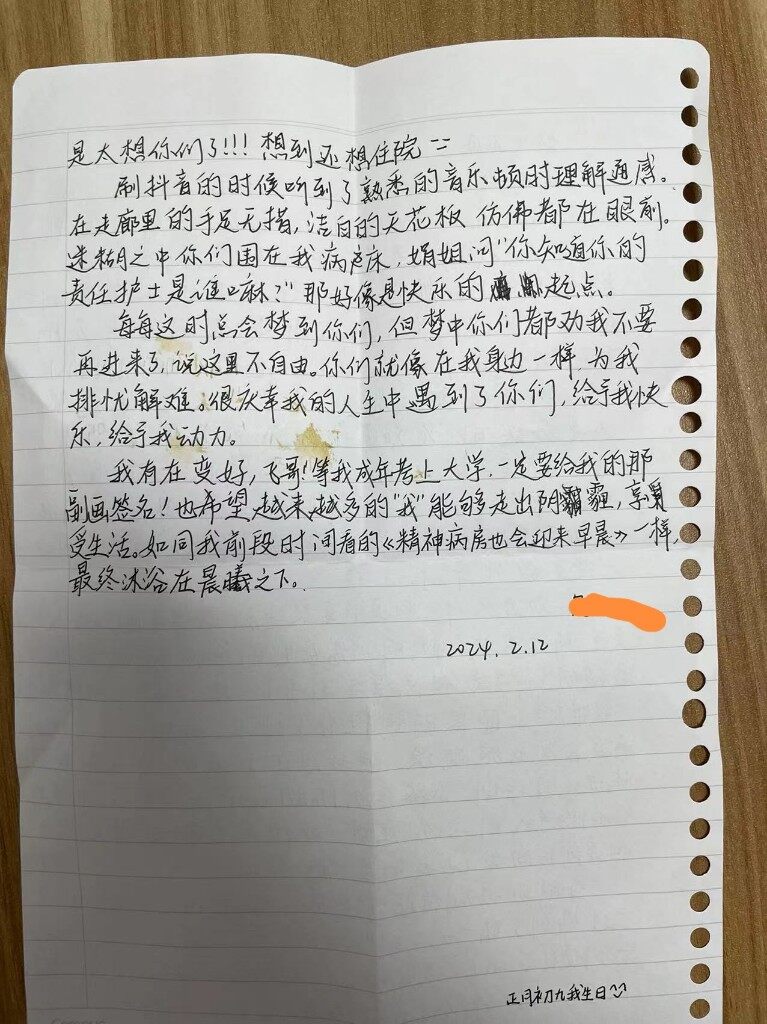 是太想你们了!!! 想到还想住院
刷抖音的时候听到了熟悉的音乐顿时理解通感。
在走廊里的手足无措,洁白的天花板 仿佛都在眼前。
迷糊之中你们围在我病床,娟姐问"你知道你的
责任护士是谁嘛?"那好像是快乐的起点。
每每这时总会梦到你们,但梦中你们都劝我不要
再进来了,说这里不自由。你们就像在我身边一样,为我
排忧解难。很庆幸我的人生中遇到了你们,给予我快
乐,给予我动力。
我有在变好,飞哥!等我成年考上大学,一定要给我的那
副画签名!也希望越来越多的"我"能够走出阴霾,享
受生活。如同我前段时间看的《精神病房也会迎来早晨》一样,
最终沐浴在晨曦之下。
2024.2.12
正月初九我生日